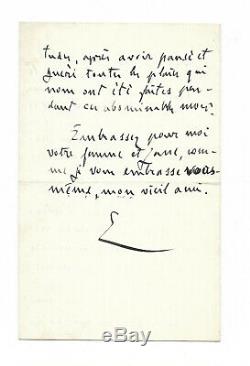 tudes, après avoir pansé et
guéri toutes les plaies qui
nous ont été faites pen-
dant ces abominables mois?
Embrassez pour moi
votre femme et Jane, com-
me je vous embrasse vous-
même, mon vieil ami.
E
ebay